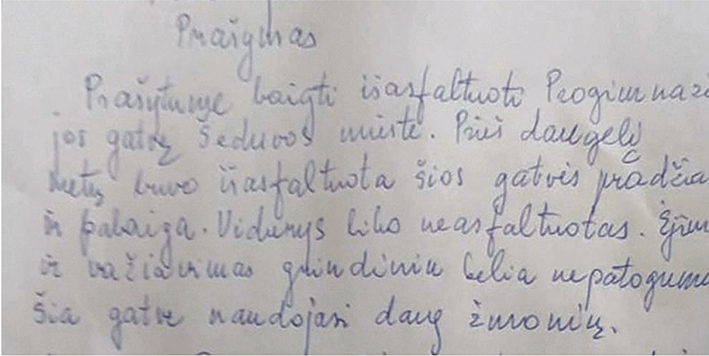 Prašymas
Prašytume baigti išasfaltuoti Progimnazi
jos gatvę Šeduvos mieste. Prieš daugelį
metų buvo išasfaltuota šios gatvės pradžia
ir pabaiga. Vidurys liko neasfaltuotas. Ėjim
ir važiavimas grindiniu kelia nepatogum
šia gatve naudojasi daug žmonių.